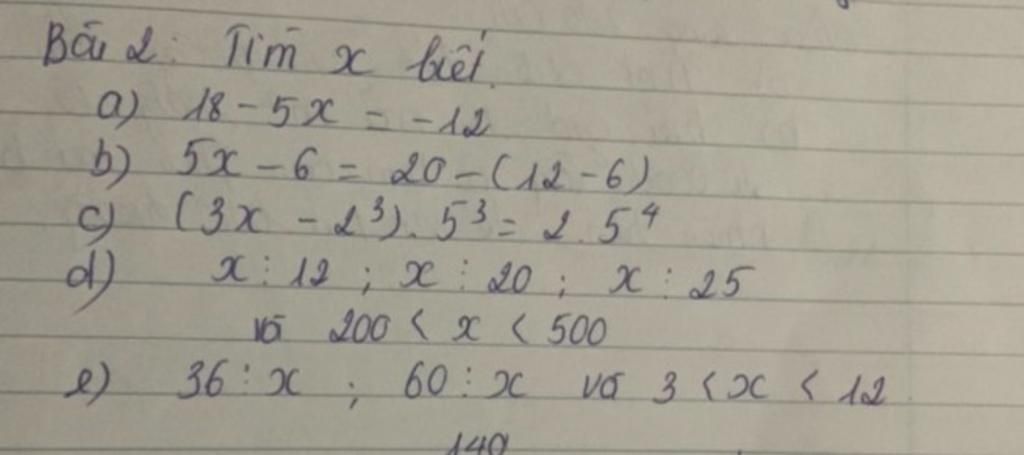 Bài 2: Tìm x biết.
a) 18 - 5x = -12
b) 5x - 6 = 20 - (12 - 6)
c) (3x - 2³). 5³ = 2. 5⁴
d) x ⋮ 12 ; x ⋮ 20 ; x ⋮ 25
và 200 < x < 500
e) 36 ⋮ x ; 60 ⋮ x và 3 < x < 12